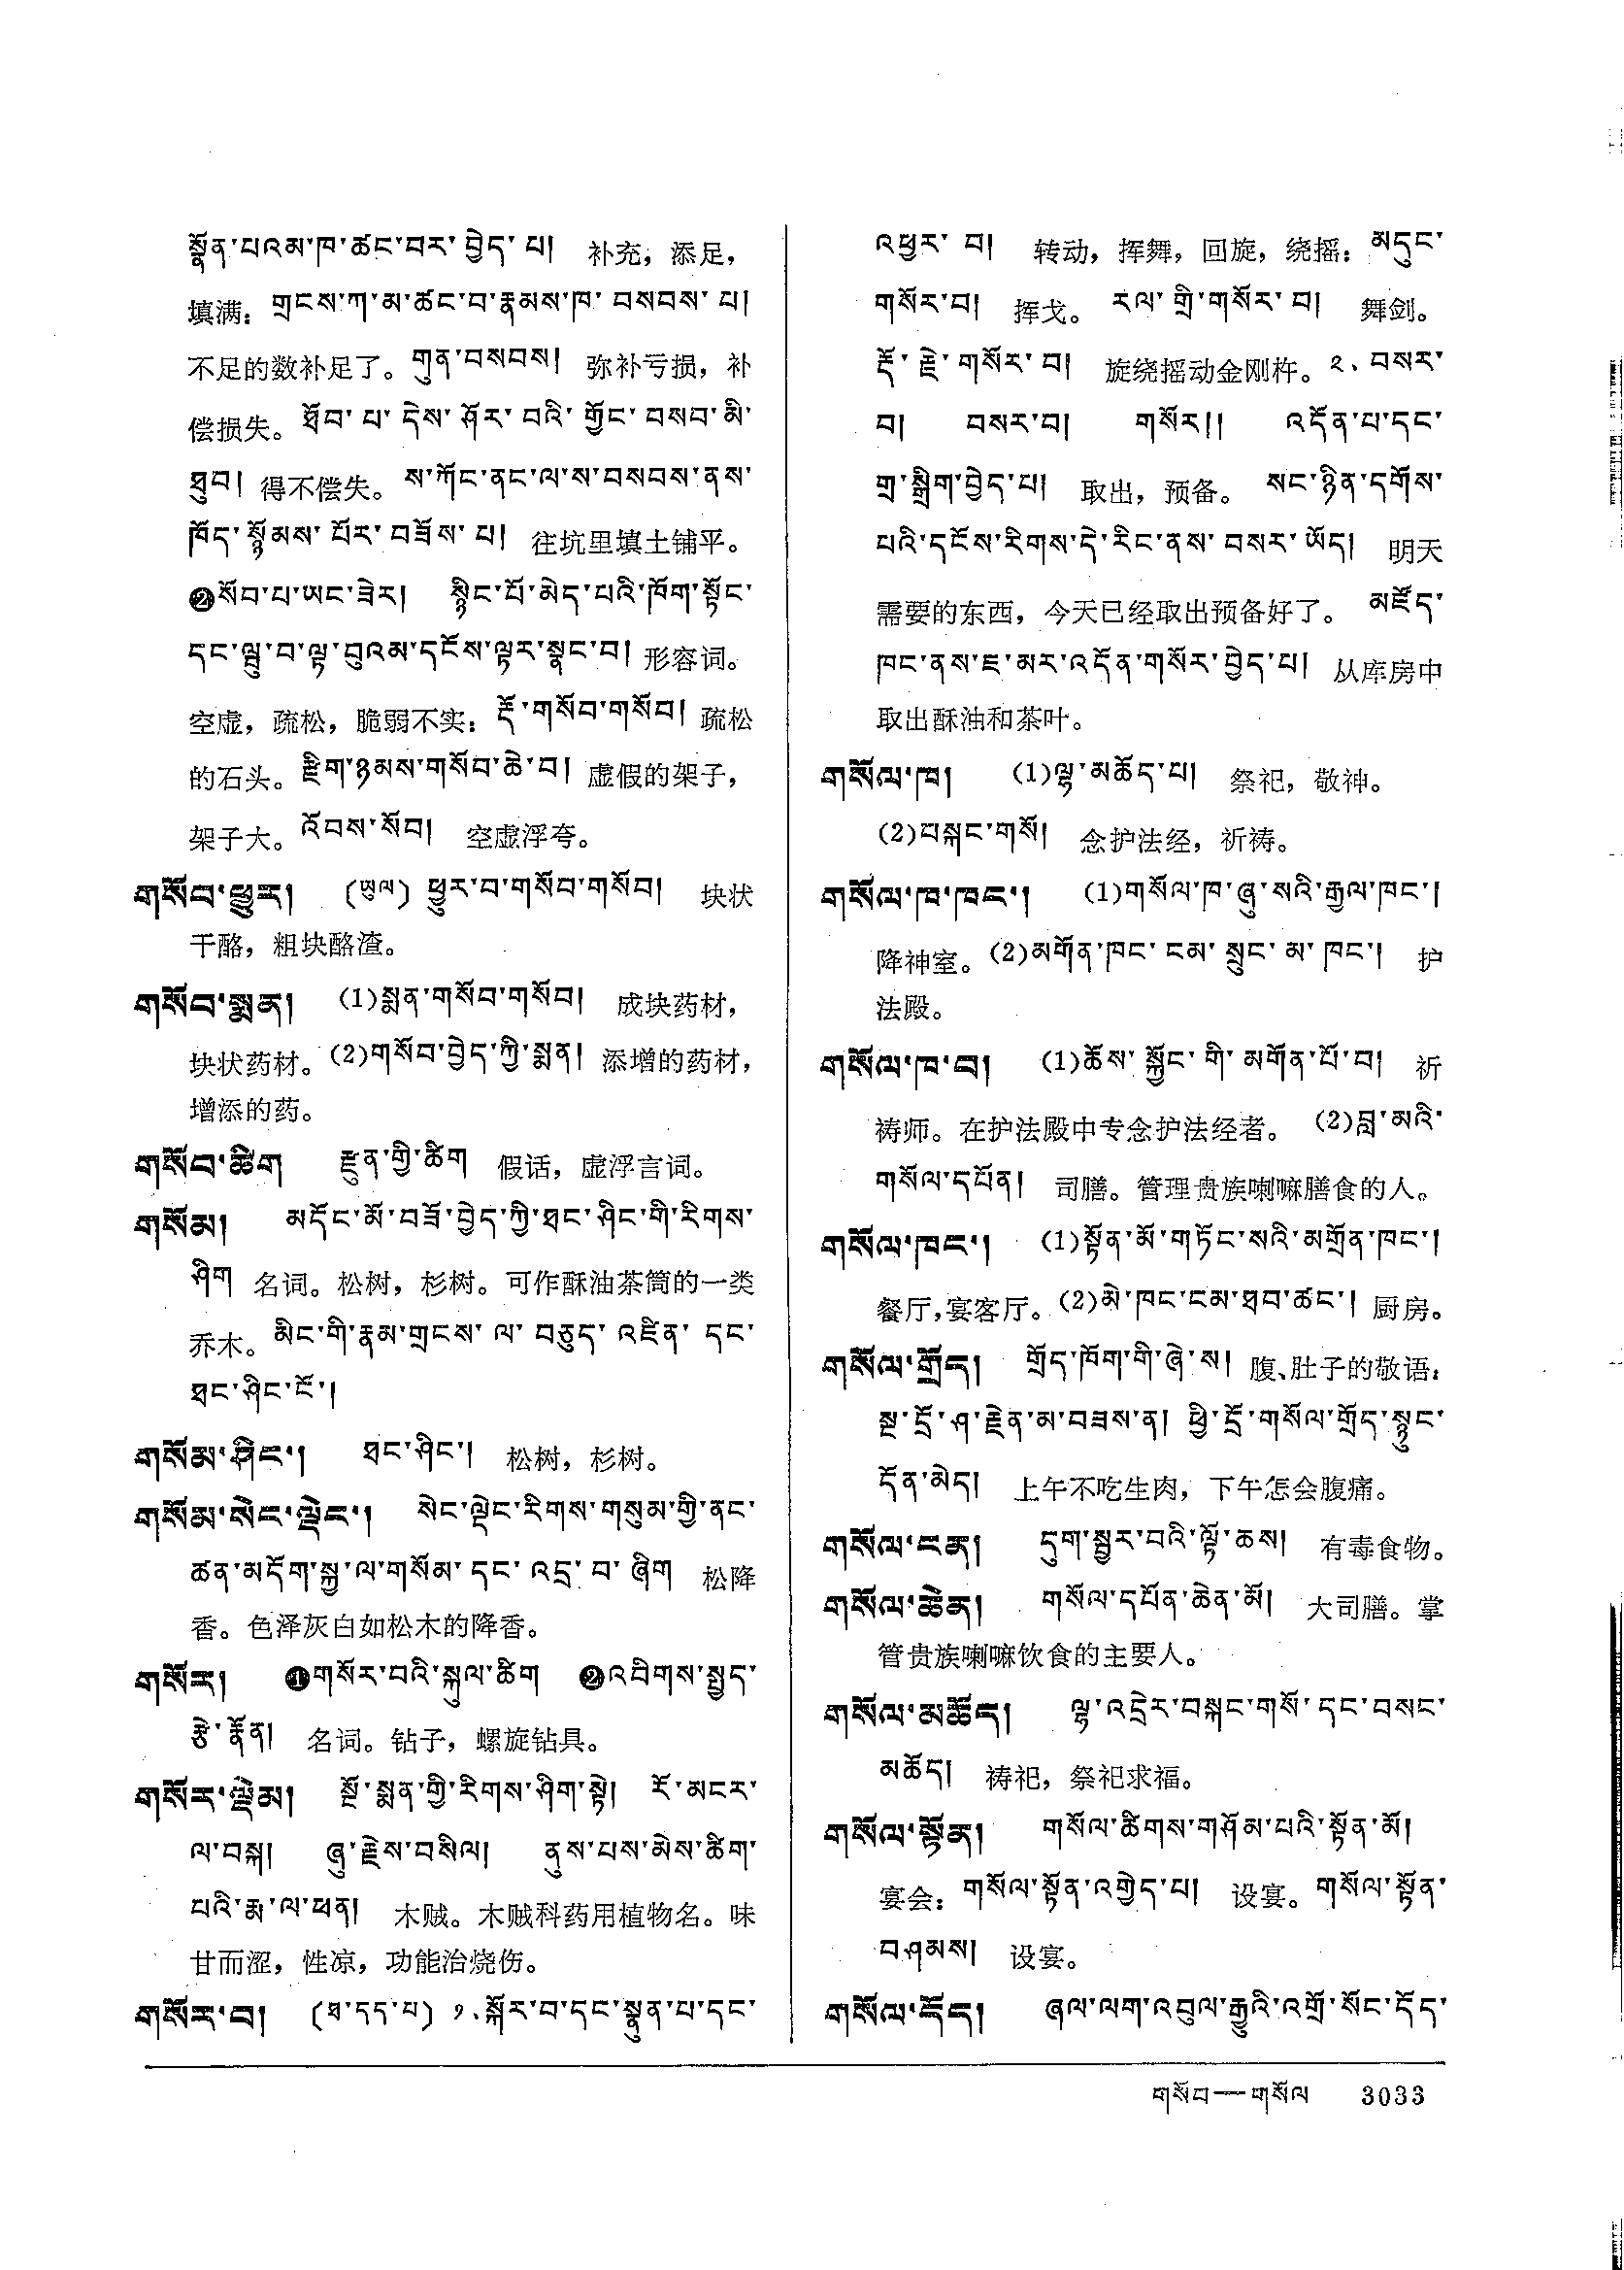 སྣོན་པའམ་ཁ་ཚང་བར་བྱེད་པ། 补充，添足，
填满：གྲངས་ཀ་མ་ཚང་བ་རྣམས་ཁ་བསབས་པ།
不足的数补足了。གུན་བསབས། 弥补亏损，补
偿损失。ཐོབ་པ་དེས་ཤོར་བའི་གྱོང་བསབ་མི་
ཐུབ། 得不偿失。ས་ཀོང་ནང་ལ་ས་བསབས་ནས་
ཁོད་སྙོམས་པོར་བཟོས་པ། 往坑里填土铺平。
❷སོབ་པ་ཡང་ཟེར། སྙིང་པོ་མེད་པའི་ཁོག་སྟོང་
དང་ལྦུ་བ་ལྟ་བུའམ་དངོས་ལྟར་སྣང་བ། 形容词。
空虚，疏松，脆弱不实：རྡོ་གསོབ་གསོབ། 疏松
的石头。རྫིག་ཉམས་གསོབ་ཆེ་བ། 虚假的架子，
架子大。འོབས་སོབ། 空虚浮夸。
གསོབ་ཕྱུར། (ཡུལ) ཕྱུར་བ་གསོབ་གསོབ། 块状
干酪，粗块酪渣。
གསོབ་སྨན། (1)སྨན་གསོབ་གསོབ། 成块药材，
块状药材。(2)གསོབ་བྱེད་ཀྱི་སྨན། 添增的药材，
增添的药。
གསོབ་ཚིག རྫུན་གྱི་ཚིག 假话，虚浮言词。
གསོམ། མདོང་མོ་བཟོ་བྱེད་ཀྱི་ཐང་ཤིང་གི་རིགས་
ཤིག 名词。松树，杉树。可作酥油茶筒的一类
乔木。མིང་གི་རྣམ་གྲངས་ལ་བཅུད་འཛིན་དང་
ཐང་ཤིང་ངོ་།
གསོམ་ཤིང་། ཐང་ཤིང་། 松树，杉树。
གསོམ་སེང་ལྡེང་། སེང་ལྡེང་རིགས་གསུམ་གྱི་ནང་
ཚན་མདོག་སྐྱ་ལ་གསོམ་དང་འདྲ་བ་ཞིག 松降
香。色泽灰白如松木的降香。
གསོར། ❶གསོར་བའི་སྐུལ་ཚིག ❷འབིགས་སྤྱད་
རྩེ་རྣོན། 名词。钻子，螺旋钻具。
གསོར་ལྡེམ། སྔོ་སྨན་གྱི་རིགས་ཤིག་སྟེ། རོ་མངར་
ལ་བསྐ། ཞུ་རྗེས་བསིལ། ནུས་པས་མེས་ཚིག་
པའི་རྨ་ལ་ཕན། 木贼。木贼科药用植物名。味
甘而涩，性凉，功能治烧伤。
གསོར་བ། (ཐ་དད་པ) ༡.སྐོར་བ་དང་སྣུན་པ་དང་
འཕྱར་བ། 转动，挥舞，回旋，绕摇：མདུང་
གསོར་བ། 挥戈。རལ་གྲི་གསོར་བ། 舞剑。
རྡོ་རྗེ་གསོར་བ། 旋绕摇动金刚杵。༢.བསར་
བ། བསར་བ། གསོར།། འདོན་པ་དང་
གྲ་སྒྲིག་བྱེད་པ། 取出，预备。སང་ཉིན་དགོས་
པའི་དངོས་རིགས་དེ་རིང་ནས་བསར་ཡོད། 明天
需要的东西，今天已经取出预备好了。མཛོད་
ཁང་ནས་ཇ་མར་འདོན་གསོར་བྱེད་པ། 从库房中
取出酥油和茶叶。
གསོལ་ཁ། (1)ལྷ་མཆོད་པ། 祭祀，敬神。
(2)བསྐང་གསོ། 念护法经，祈祷。
གསོལ་ཁ་ཁང་། (1)གསོལ་ཁ་ཞུ་སའི་རྒྱལ་ཁང་།
降神室。(2)མགོན་ཁང་ངམ་སྲུང་མ་ཁང་། 护
法殿。
གསོལ་ཁ་བ། (1)ཆོས་སྐྱོང་གི་མགོན་པོ་བ། 祈
祷师。在护法殿中专念护法经者。(2)བླ་མའི་
གསོལ་དཔོན། 司膳。管理贵族喇嘛膳食的人。
གསོལ་ཁང་། (1)སྟོན་མོ་གཏོང་སའི་མགྲོན་ཁང་།
餐厅，宴客厅。(2)མེ་ཁང་ངམ་ཐབ་ཚང་། 厨房。
གསོལ་གྲོད། གྲོད་ཁོག་གི་ཞེ་ས། 腹、肚子的敬语：
སྔ་དྲོ་ཤ་རྗེན་མ་བཟས་ན། ཕྱི་དྲོ་གསོལ་གྲོད་སྙུང་
དོན་མེད། 上午不吃生肉，下午怎会腹痛。
གསོལ་ངན། དུག་སྦྱར་བའི་ལྟོ་ཆས། 有毒食物。
གསོལ་ཆེན། གསོལ་དཔོན་ཆེན་མོ། 大司膳。掌
管贵族喇嘛饮食的主要人。
གསོལ་མཆོད། ལྷ་འདྲེར་བསྐང་གསོ་དང་བསང་
མཆོད། 祷祀，祭祀求福。
གསོལ་སྟོན། གསོལ་ཚིགས་གཤོམ་པའི་སྟོན་མོ།
宴会：གསོལ་སྟོན་འགྱེད་པ། 设宴。གསོལ་སྟོན་
བཤམས། 设宴。
གསོལ་དོད། ཞལ་ལག་འབུལ་རྒྱུའི་འགྲོ་སོང་དོད་
གསོབ—གསོལ 3033